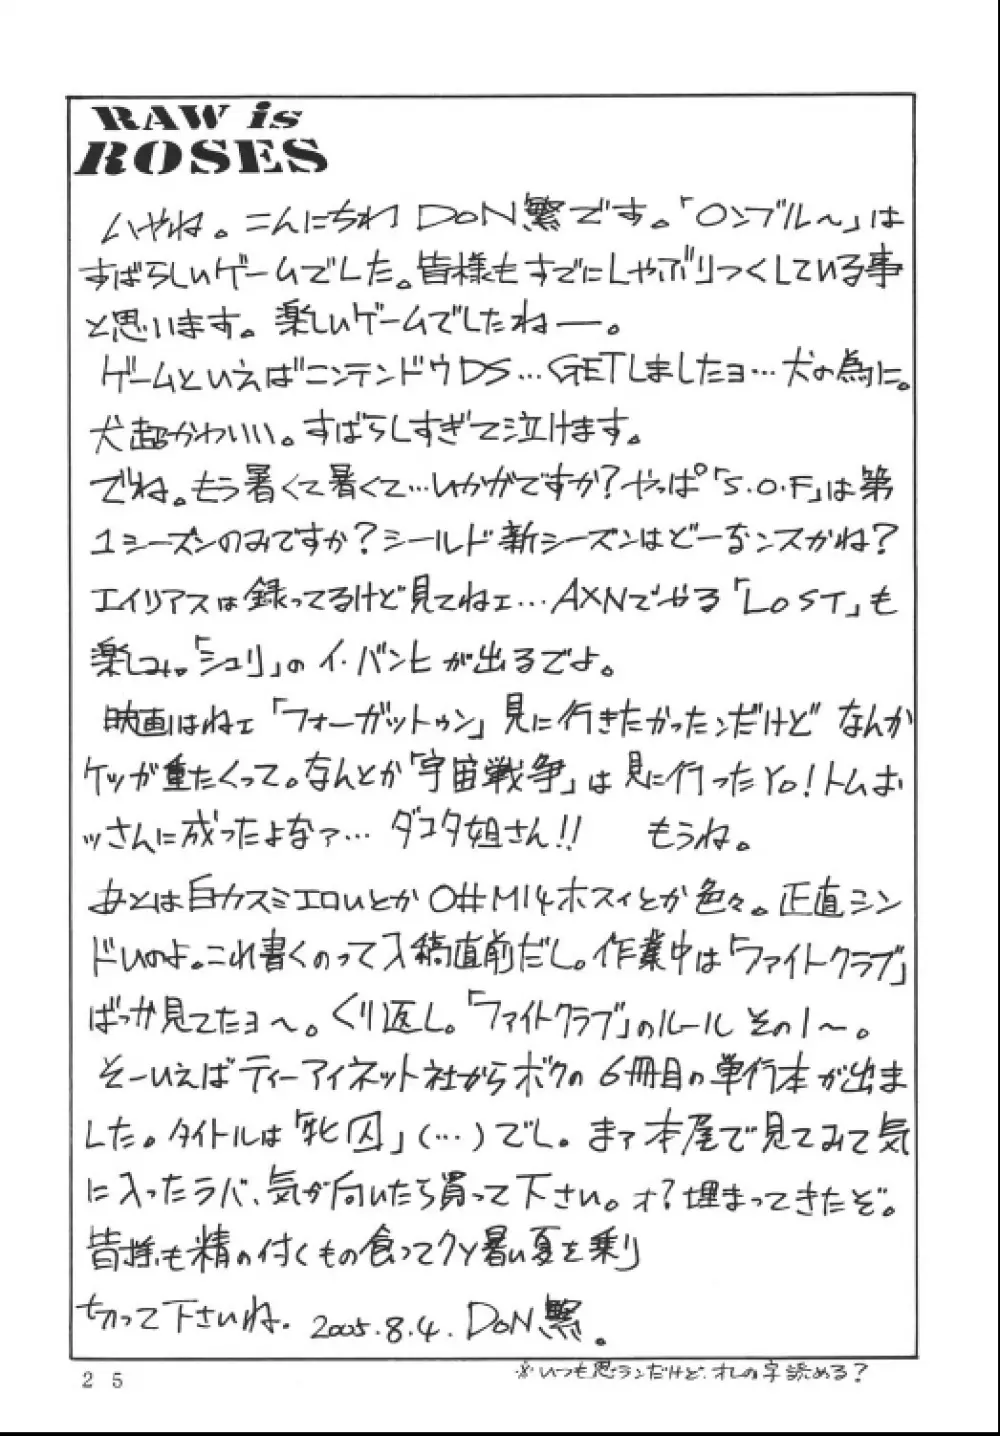 RAW is
ROSES
ハやね。こんにちわ DoN繁です。「ロンブル〜」は
すばらしいゲームでした。皆様もすでにしゃぶりつくしている事
と思います。楽しいゲームでしたねー。
ゲームといえばニンテンドウDS…GETしましたョ…犬の為に。
犬超かわいい。すばらしすぎて泣けます。
でね。もう暑くて暑くて…いかがですか?やっぱ「S.O.F」は第
1シーズンのみですか?シールド新シーズンはどーなンスかね?
エイリアスは録ってるけど見てねェ…AXNでやる「LOST」も
楽しみ。「シュリ」のイ・バンヒが出るでよ。
映画はねェ「フォーガットゥン」見に行きたかったンだけど なんか
ケツが重たくって。なんとか「宇宙戦争」は見に行ったYo!トムお
ッさんに成ったよなァ… ダコタ姐さん!! もうね。
あとは白カスミエロいとか O#M14ホスィとか色々。正直シン
ドいのよ。これ書くのって入稿直前だし。作業中は「ファイトクラブ」
ばっか見てたョ〜。くり返し。「ファイトクラブ」のルール その1〜。
そーいえばティーアイネット社からボクの6冊目の単行本が出ま
した。タイトルは「牝囚」(…)でし。まァ本屋で見てみて気
に入ったラバ、気が向いたら買って下さい。オ?埋まってきたぞ。
皆様も精の付くもの食ってクソ暑い夏を乗り
切って下さいね。2005.8.4. DoN繁。
25
※いつも思うンだけど、オレの字読める?